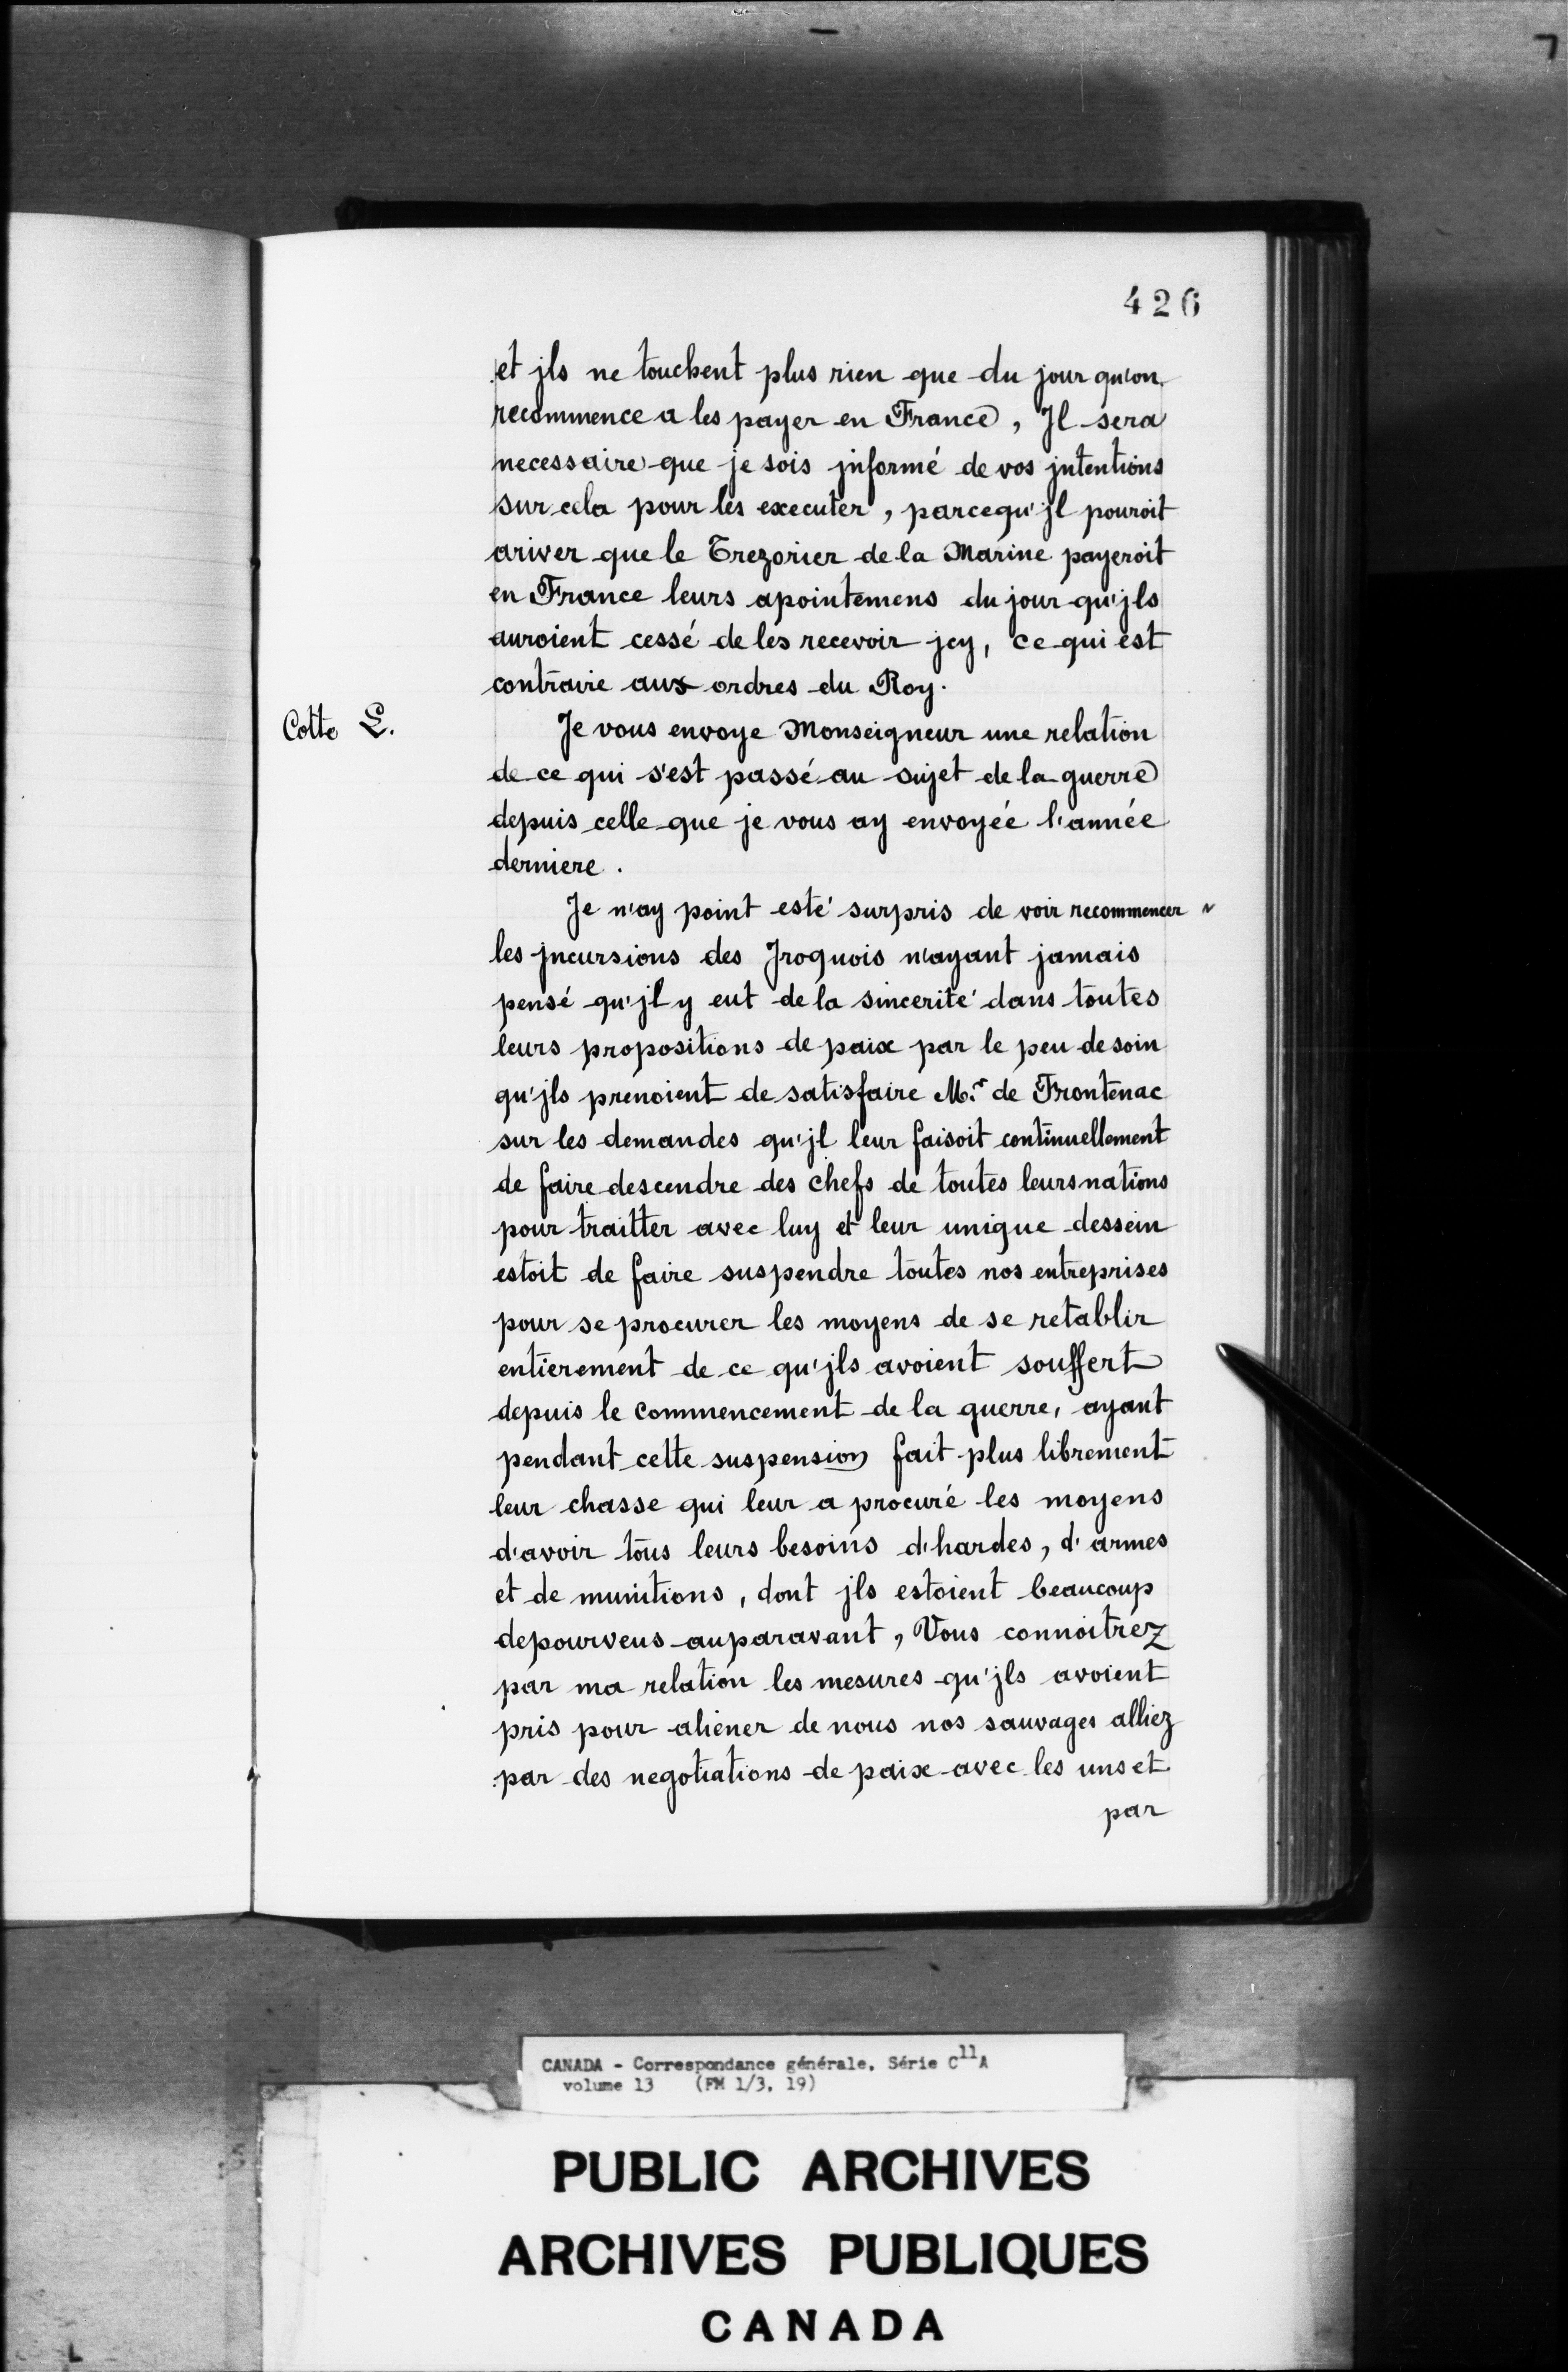 426
et jls ne touchent plus rien que du jour qu'on
recommence a les payer en France, Jl sera
necessaire que je sois jnformé de vos jntentions
sur cela pour les executer, parcequ'jl pouroit
ariver que le Trezorier de la Marine payeroit
en France leurs apointemens du jour qu'jls
auroient cessé de les recevoir jcy, ce qui est
contraire aux ordres du Roy.
Cotte L.
Je vous envoye Monseigneur une relation
de ce qui s'est passé au sujet de la guerre
depuis celle que je vous ay envoyée l'année
derniere.
Je n'ay point esté surpris de voir recommencer
les jncursions des Jroquois n'ayant jamais
pensé qu'jl y eut de la sincerité dans toutes
leurs propositions de paix par le peu de soin
qu'jls prenoient de satisfaire Mr. de Frontenac
sur les demandes qu'jl leur faisoit continuellement
de faire descendre des chefs de toutes leurs nations
pour traitter avec luy et leur unique dessein
estoit de faire suspendre toutes nos entreprises
pour se procurer les moyens de se retablir
entierement de ce qu'jls avoient souffert
depuis le commencement de la guerre, ayant
pendant cette suspension fait plus librement
leur chasse qui leur a procuré les moyens
d'avoir tous leurs besoins d'hardes, d'armes
et de munitions, dont jls estoient beaucoup
depourveus auparavant, Vous connoitrez
par ma relation les mesures qu'jls avoient
pris pour aliener de nous nos sauvages alliez
par des negotiations de paix avec les uns et
par
CANADA - Correspondance générale, Série C11A
volume 13 (FM 1/3, 19)
PUBLIC ARCHIVES
ARCHIVES PUBLIQUES
CANADA